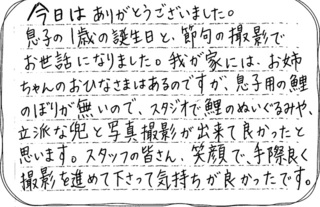 今日はありがとうございました。
息子の1歳の誕生日と、節句の撮影で
お世話になりました。我が家には、お姉
ちゃんのおひなさまはあるのですが、息子用の鯉
のぼりが無いので、スタジオで鯉のぬいぐるみや、
立派な兜と写真撮影が出来て良かったと
思います。スタッフの皆さん、笑顔で、手際良く
撮影を進めて下さって気持ちが良かったです。